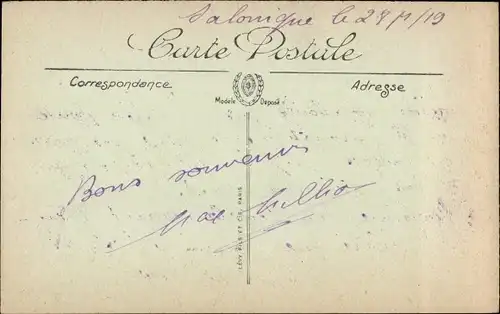 Salonique le 28/1/19
Carte Postale
Correspondance
Adresse
Modèle Déposé
Bons souvenirs
LÉVY, FILS ET CIE, PARIS